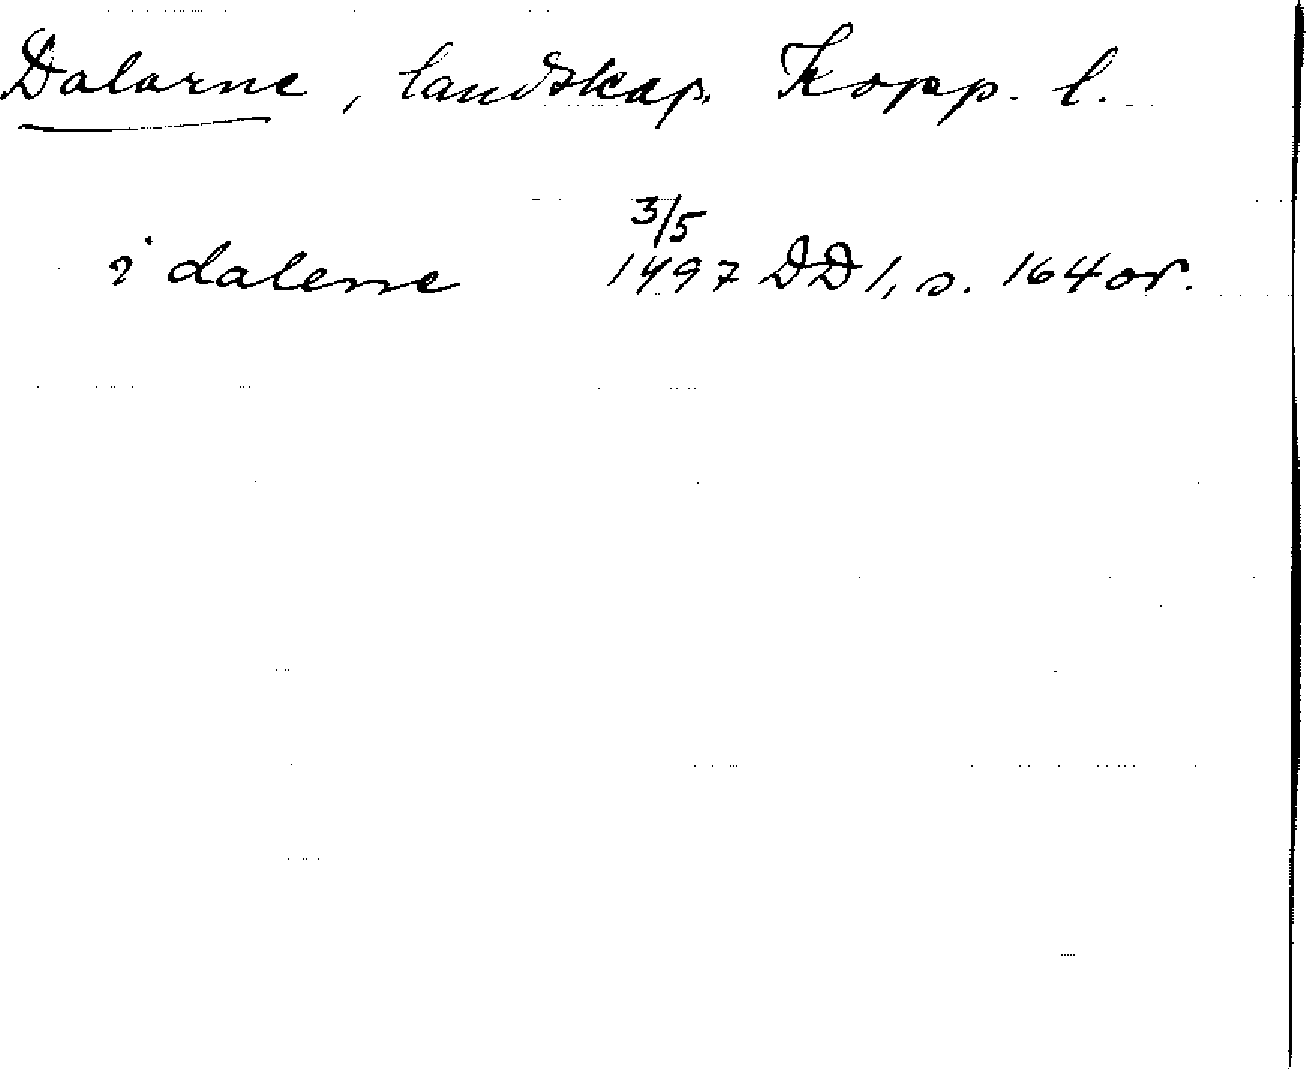 Dalarne, landskap. Kopp. l.
i dalene 3/5 1497 DD 1, s. 164 or.